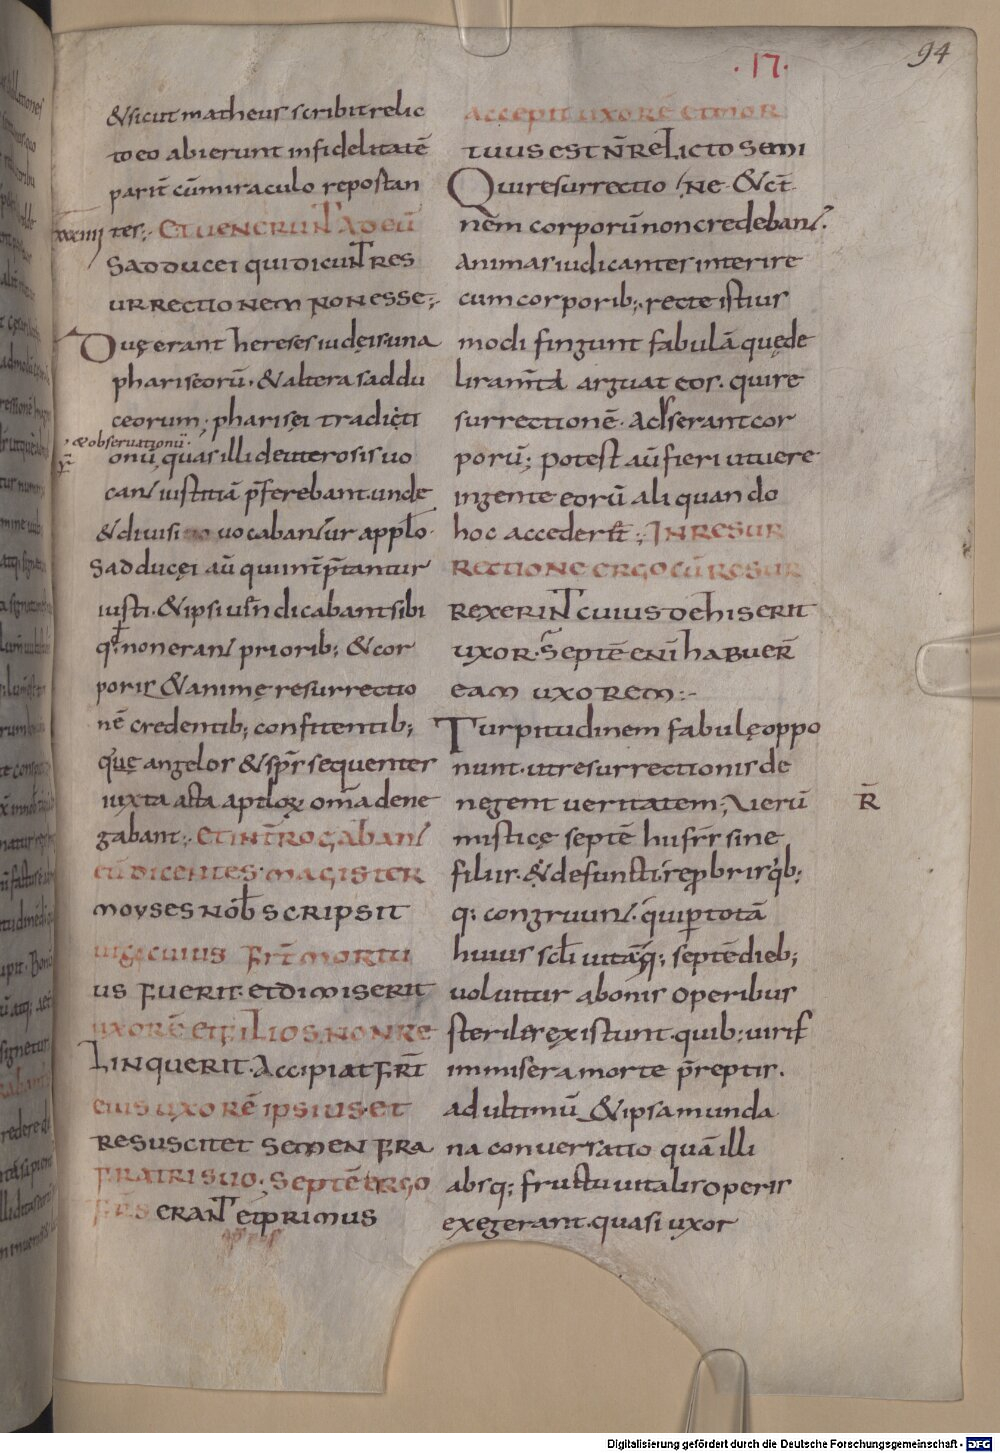 94
·17·
&sicut matheus scribit relic
to eo abierunt infidelitatē
parit̄ cū miraculo repostan
xxxiiij
ter;· Et venerunt ad eū
sadducei qui dicunt res
urrectionem non esse;·
Duę erant hereses iudęis una
phariseorū· & altera saddu
ceorum; pharisęi traditi
· & observationū·
onū quas illi deuterosis uo
cant iustitiā p̄ferebant· unde
& divisi uocabantur applō·
Sadducęi aū qui int̄p̄tantur
iusti· & ipsi uēn dicabant sibi
q̄ non erant priorib; & cor
poris & animę resurrectio
nē credentib; confitentib;
quę angelos & sp̄s sequenter
iuxta acta aptlorꝝ om̄a dene
gabant;· Et int̄rogabant
eū dicentes· magister
moyses nob̄ scripsit
frī mortu
us fuerit· et dimiserit
uxorē et filios non re
linquerit· Accipiat frī
eius uxorē ipsius· et
resuscitet semen fra
fratri suo· Septē ergo
frs̄ erant et primus
accepit uxorē et mor
tuus est n̄ relicto semi
ne· &c̄t
Qui resurrectio
nēm corporū non credebant·
animas iudicantes interire
cum corporib;· recte istius
modi fingunt fabulā quę de
liram̄ta arguat eos· qui re
surrectionē· adserant cor
porū; potest aū fieri ut uere
in gente eorū aliquando
hoc accederit;· In resur
rectione ergo cū resur
rexerint cuius de his erit
uxor· Septē enī habuer̄
eam uxorem;·
Turpitudinem fabulę oppo
nunt· ut resurrectionis de
negent ueritatem; Uerū
R̄
misticę septē hi fr̄r sine
filiis· & defuncti rępbris q̇b;
q; congruunt· qui p totā
huius scl̄i uitāq; septē dieb;
uoluitur a bonis operibus
steriles existunt· quib; uiris
im misera morte p̄reptis·
ad ultimū & ipsa munda
na conuersatio quā illi
absq; fructu uitalis operis
exegerant· quasi uxor
Digitalisierung gefördert durch die Deutsche Forschungsgemeinschaft - DFG